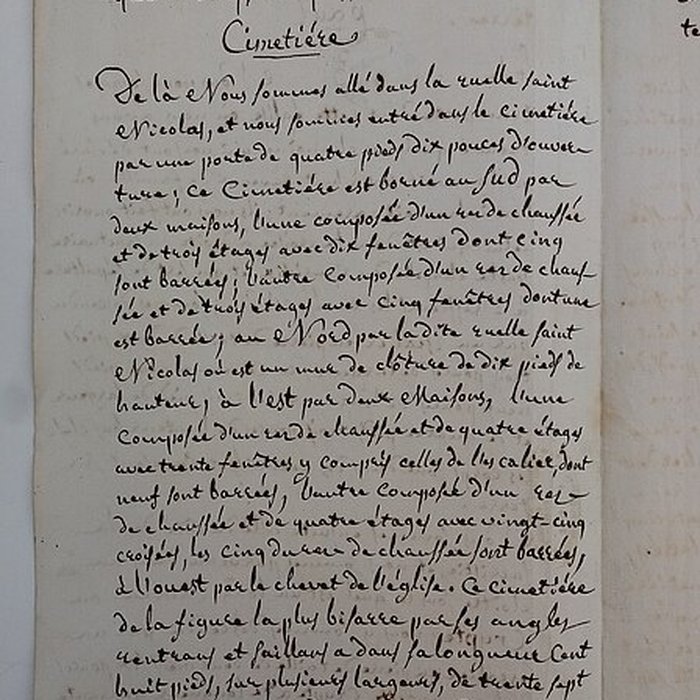 Cimetiére
De là Nous sommes allé dans la ruelle saint
Nicolas, et nous sommes entré dans le cimetiére
par une porte de quatre pieds dix pouces d'ouver-
ture; ce Cimetiére est borné au sud par
deux maisons, l'une composée d'un rez de chaussée
et de trois étages avec dix fenêtres dont cinq
sont barrées; l'autre Composée d'un rez de chauf-
sée et de trois étages avec cinq fenêtres dont une
est barrée; au Nord par la dite ruelle saint
Nicolas où est un mur de clôture de dix pieds de
hauteur, à l'est par deux Maisons, l'une
composée d'un rez de chaussée et de quatre étages
avec trente fenêtres y compris celles de l'escalier, dont
neuf sont barrées, l'autre composée d'un rez-
de chaussée et de quatre étages avec vingt-cinq
croisées, les cinq du rez-de chaussée sont barrées,
à l'ouest par le chevet de l'église. Ce cimetiére
de la figure la plus bisarre par ses angles
rentrans et saillans a dans sa longueur Cent
huit pieds, sur plusieurs largeurs, de trente sept